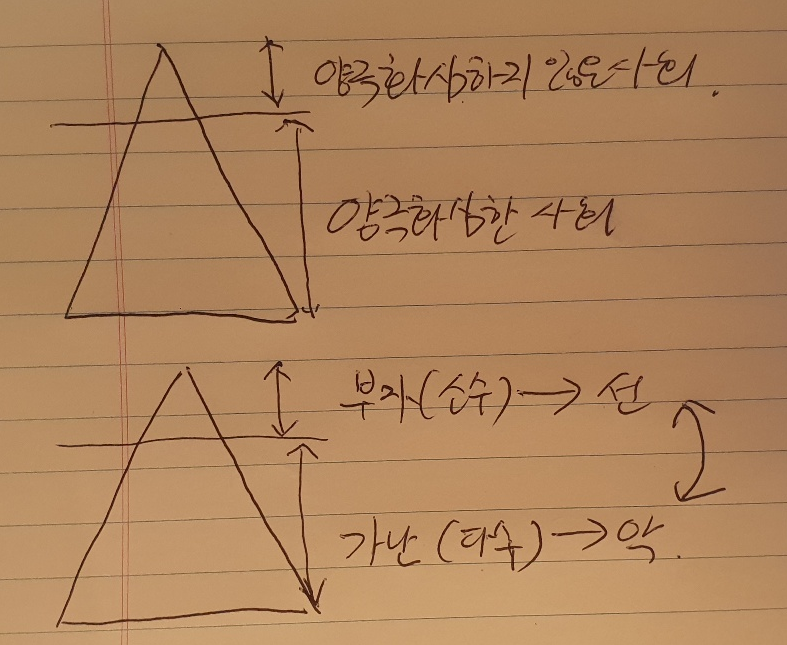 양극화심하지 않은사회.
양극화심한 사회
부자(소수)→선
가난(다수)→악.